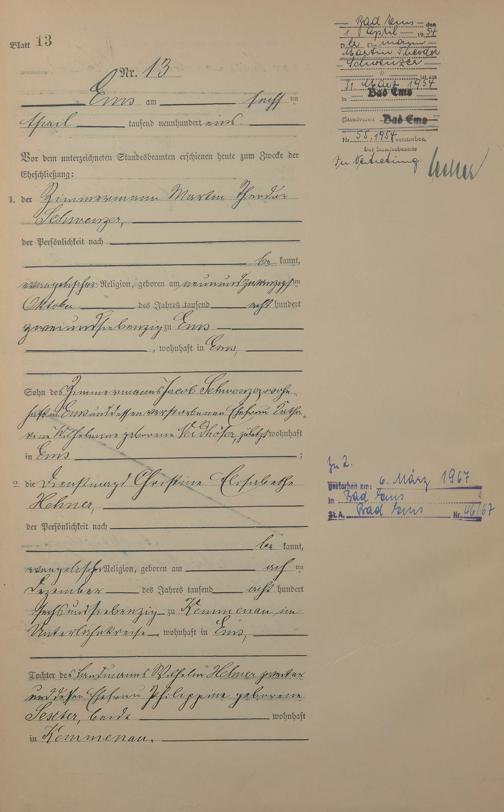 Blatt 13
Nr. 13
Ems am
April tausend neunhundert eins
Vor dem unterzeichneten Standesbeamten erschienen heute zum Zwecke der
Eheschließung:
1. der Zimmermann Martin Theodor
Schwenzer,
der Persönlichkeit nach
be kannt,
evangelischer Religion, geboren am neunundzwanzigsten
Oktober des Jahres tausend acht hundert
zweiundsiebenzig zu Ems
, wohnhaft in Ems,
Sohn des Zimmermanns Jacob Schwenzer wohn-
haft in Ems und dessen verstorbenen Ehefrau Catha-
rine Wilhelmine geborene zuletzt wohnhaft
in Ems ;
2. die Dienstmagd Christine Elisabethe
Hehner,
der Persönlichkeit nach
be kannt,
evangelischer Religion, geboren am
Dezember des Jahres tausend acht hundert
sechsundsiebenzig zu Kemmenau im
Unterlahnkreise, wohnhaft in Ems,
Tochter des Landmanns Wilhelm Hehner
und dessen Ehefrau Philippine geborene
beide wohnhaft
in Kemmenau.
Bad Ems den
1. April 1954
Martin Theodor
Schwenzer
31. März 1954
in Bad Ems
Bad Ems
Nr. 55/1954
Der Standesbeamte
In Vertretung
Zu 2.
gestorben am: 6. März 1967
in Bad Ems
St. A. Bad Ems Nr. 46/67